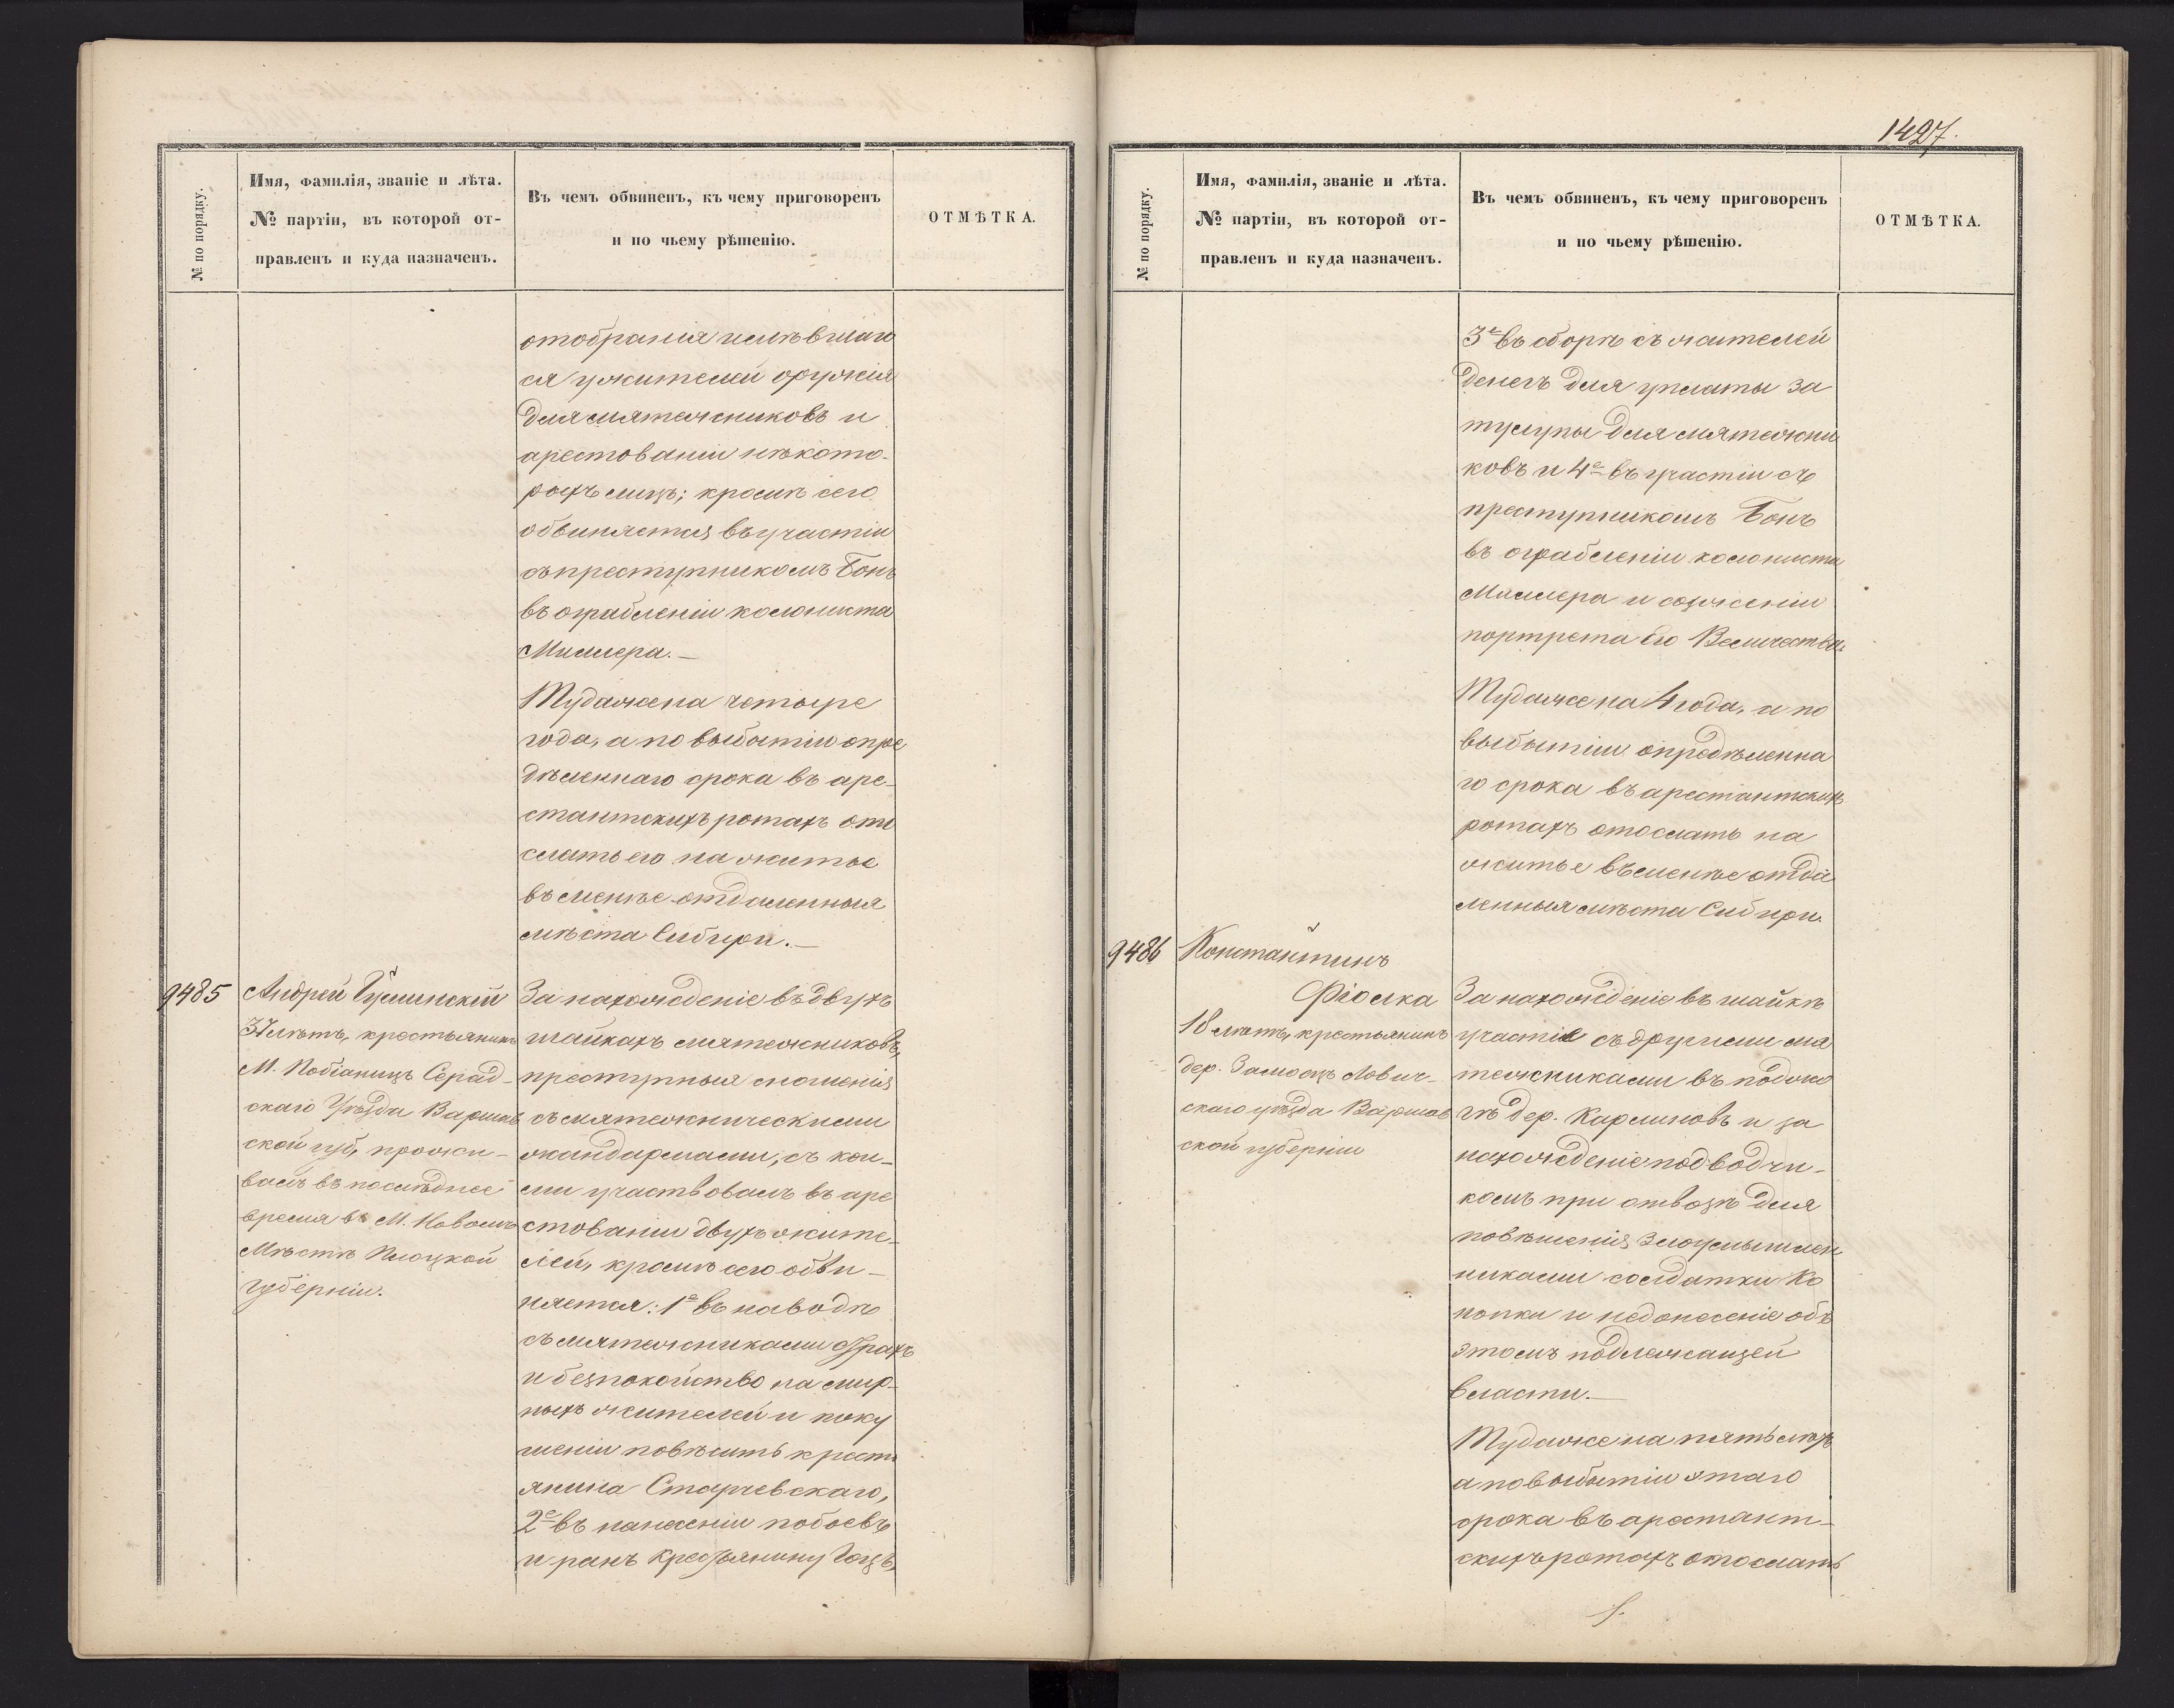 1427.
№ по порядку.
Имя, фамилія, званіе и лѣта.
№ партіи, въ которой от-
правленъ и куда назначенъ.
Въ чемъ обвиненъ, къ чему приговоренъ
и по чьему рѣшенію.
ОТМѢТКА.
отобранія имѣвшаго
ся у жителей оружія
для мятежниковъ и
арестованіи нѣкото-
рыхъ лицъ; кромѣ сего
обвиняется въ участіи
съ преступникомъ Бонъ
въ ограбленіи колониста
Миллера.—
Туда же на четыре
года, а по выбытіи опре
дѣленнаго срока въ аре-
стантскихъ ротахъ ото
слать его на житье
въ менѣе отдаленныя
мѣста Сибири.—
9485
Андрей Гуминскій
37 лѣтъ, крестьянинъ
М. Побіаницъ Серад-
скаго Уѣзда Варшав
ской губ, прожи-
валъ въ послѣднее
время въ М. Новомъ
Мѣстѣ Плоцкой
губерніи.
За нахожденіе въ двухъ
шайкахъ мятежниковъ,
преступныя сношенія
съ мятежническими
жандармами, съ кои-
ми участвовалъ въ аре
стованіи двухъ жите-
лей, кромѣ сего обви-
няется: 1е въ наводѣ
съ мятежниками страхъ
и безпокойство на мир-
ныхъ жителей и поку
шеніи повѣсить кресть
янина Старчевскаго,
2е въ нанесеніи побоевъ
и ранъ крестьянину Гоцъ,
№ по порядку.
Имя, фамилія, званіе и лѣта.
№ партіи, въ которой от-
правленъ и куда назначенъ.
Въ чемъ обвиненъ, къ чему приговоренъ
и по чьему рѣшенію.
ОТМѢТКА.
3е въ сборѣ съ жителей
денегъ для уплаты за
тулупы для мятежни
ковъ и 4е въ участіи съ
преступникомъ Бонъ
въ ограбленіи колониста
Миллера и сожженіи
портрета Его Величества.
Туда же на 4 года, а по
выбытіи опредѣленна
го срока въ арестантскихъ
ротахъ отослать на
житье въ менѣе отда
ленныя мѣста Сибири.
9486
Константинъ
Фіолка
18 лѣтъ, крестьянинъ
дер. Замосцъ Лович-
скаго уѣзда Варшав
ской губерніи
За нахожденіе въ шайкѣ
участіе съ другими мя
тежниками въ поджо
гѣ дер. Карлиновъ и за
нахожденіе подводчи-
комъ при отвозѣ для
повѣшенія злоумышлен
никами солдатки Ко
попки и недонесеніе объ
этомъ подлежащей
власти.—
Туда же на пять лѣтъ
а по выбытіи этаго
срока въ арестант-
скихъ ротахъ отослать